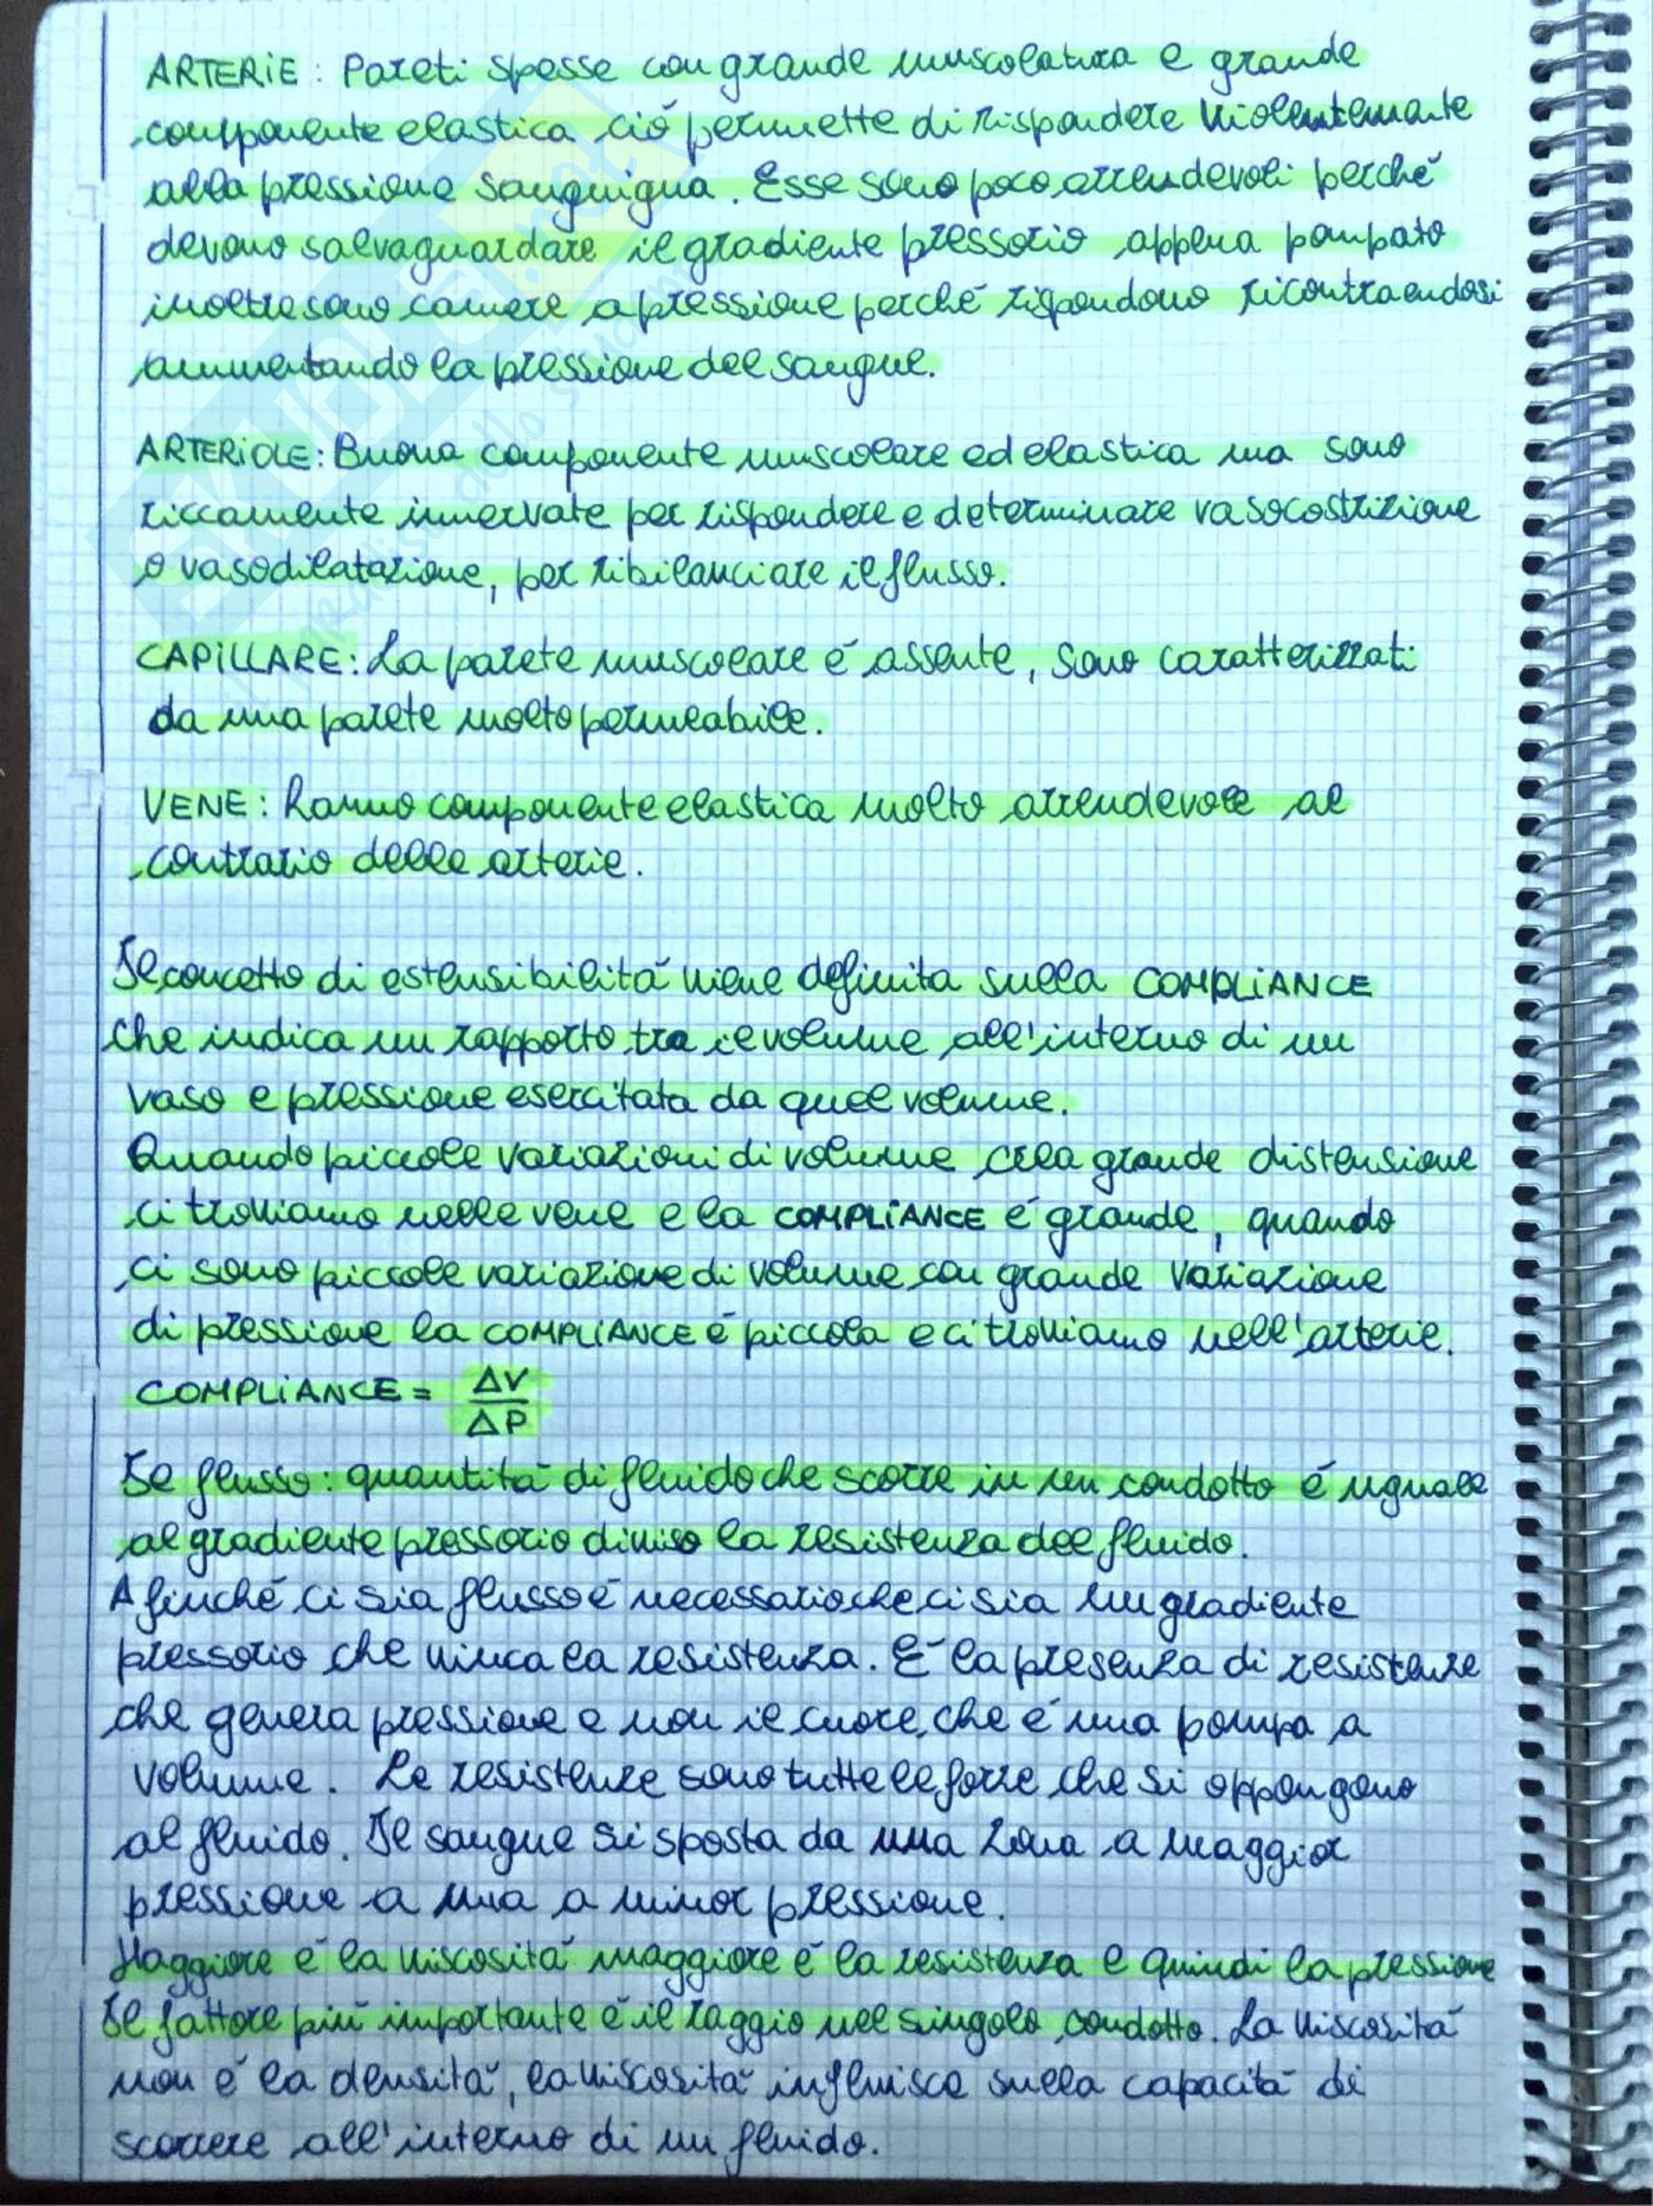 ARTERIE: Pareti spesse con grande muscolatura e grande
componente elastica ciò permette di rispondere violentemente
alla pressione sanguigna. Esse sono poco arrendevoli perché
devono salvaguardare il gradiente pressorio appena pompato
inoltre sono camere a pressione perché rispondono ricontraendosi
aumentando la pressione del sangue.
ARTERIOLE: Buona componente muscolare ed elastica ma sono
riccamente innervate per rispondere e determinare vasocostrizione
o vasodilatazione, per ribilanciare il flusso.
CAPILLARE: La parete muscolare è assente, sono caratterizzati
da una parete molto permeabile.
VENE: hanno componente elastica molto arrendevole al
contrario delle arterie.
Il concetto di estensibilità viene definita sulla COMPLIANCE
che indica un rapporto tra il volume all'interno di un
vaso e pressione esercitata da quel volume.
Quando piccole variazioni di volume crea grande distensione
ci troviamo nelle vene e la COMPLIANCE è grande, quando
ci sono piccole variazione di volume con grande variazione
di pressione la COMPLIANCE è piccola e ci troviamo nell'arterie.
COMPLIANCE = ΔV
ΔP
Il flusso: quantità di fluido che scorre in un condotto è uguale
al gradiente pressorio diviso la resistenza del fluido.
Afinché ci sia flusso è necessario che ci sia un gradiente
pressorio che vinca la resistenza. È la presenza di resistenze
che genera pressione e non il cuore, che è una pompa a
volume. Le resistenze sono tutte le forze che si oppongono
al fluido. Il sangue si sposta da una zona a maggior
pressione a una a minor pressione.
Maggiore è la viscosità maggiore è la resistenza e quindi la pressione
Il fattore più importante è il raggio nel singolo condotto. La viscosità
non è la densità, la viscosità influisce sulla capacità di
scorrere all'interno di un fluido.